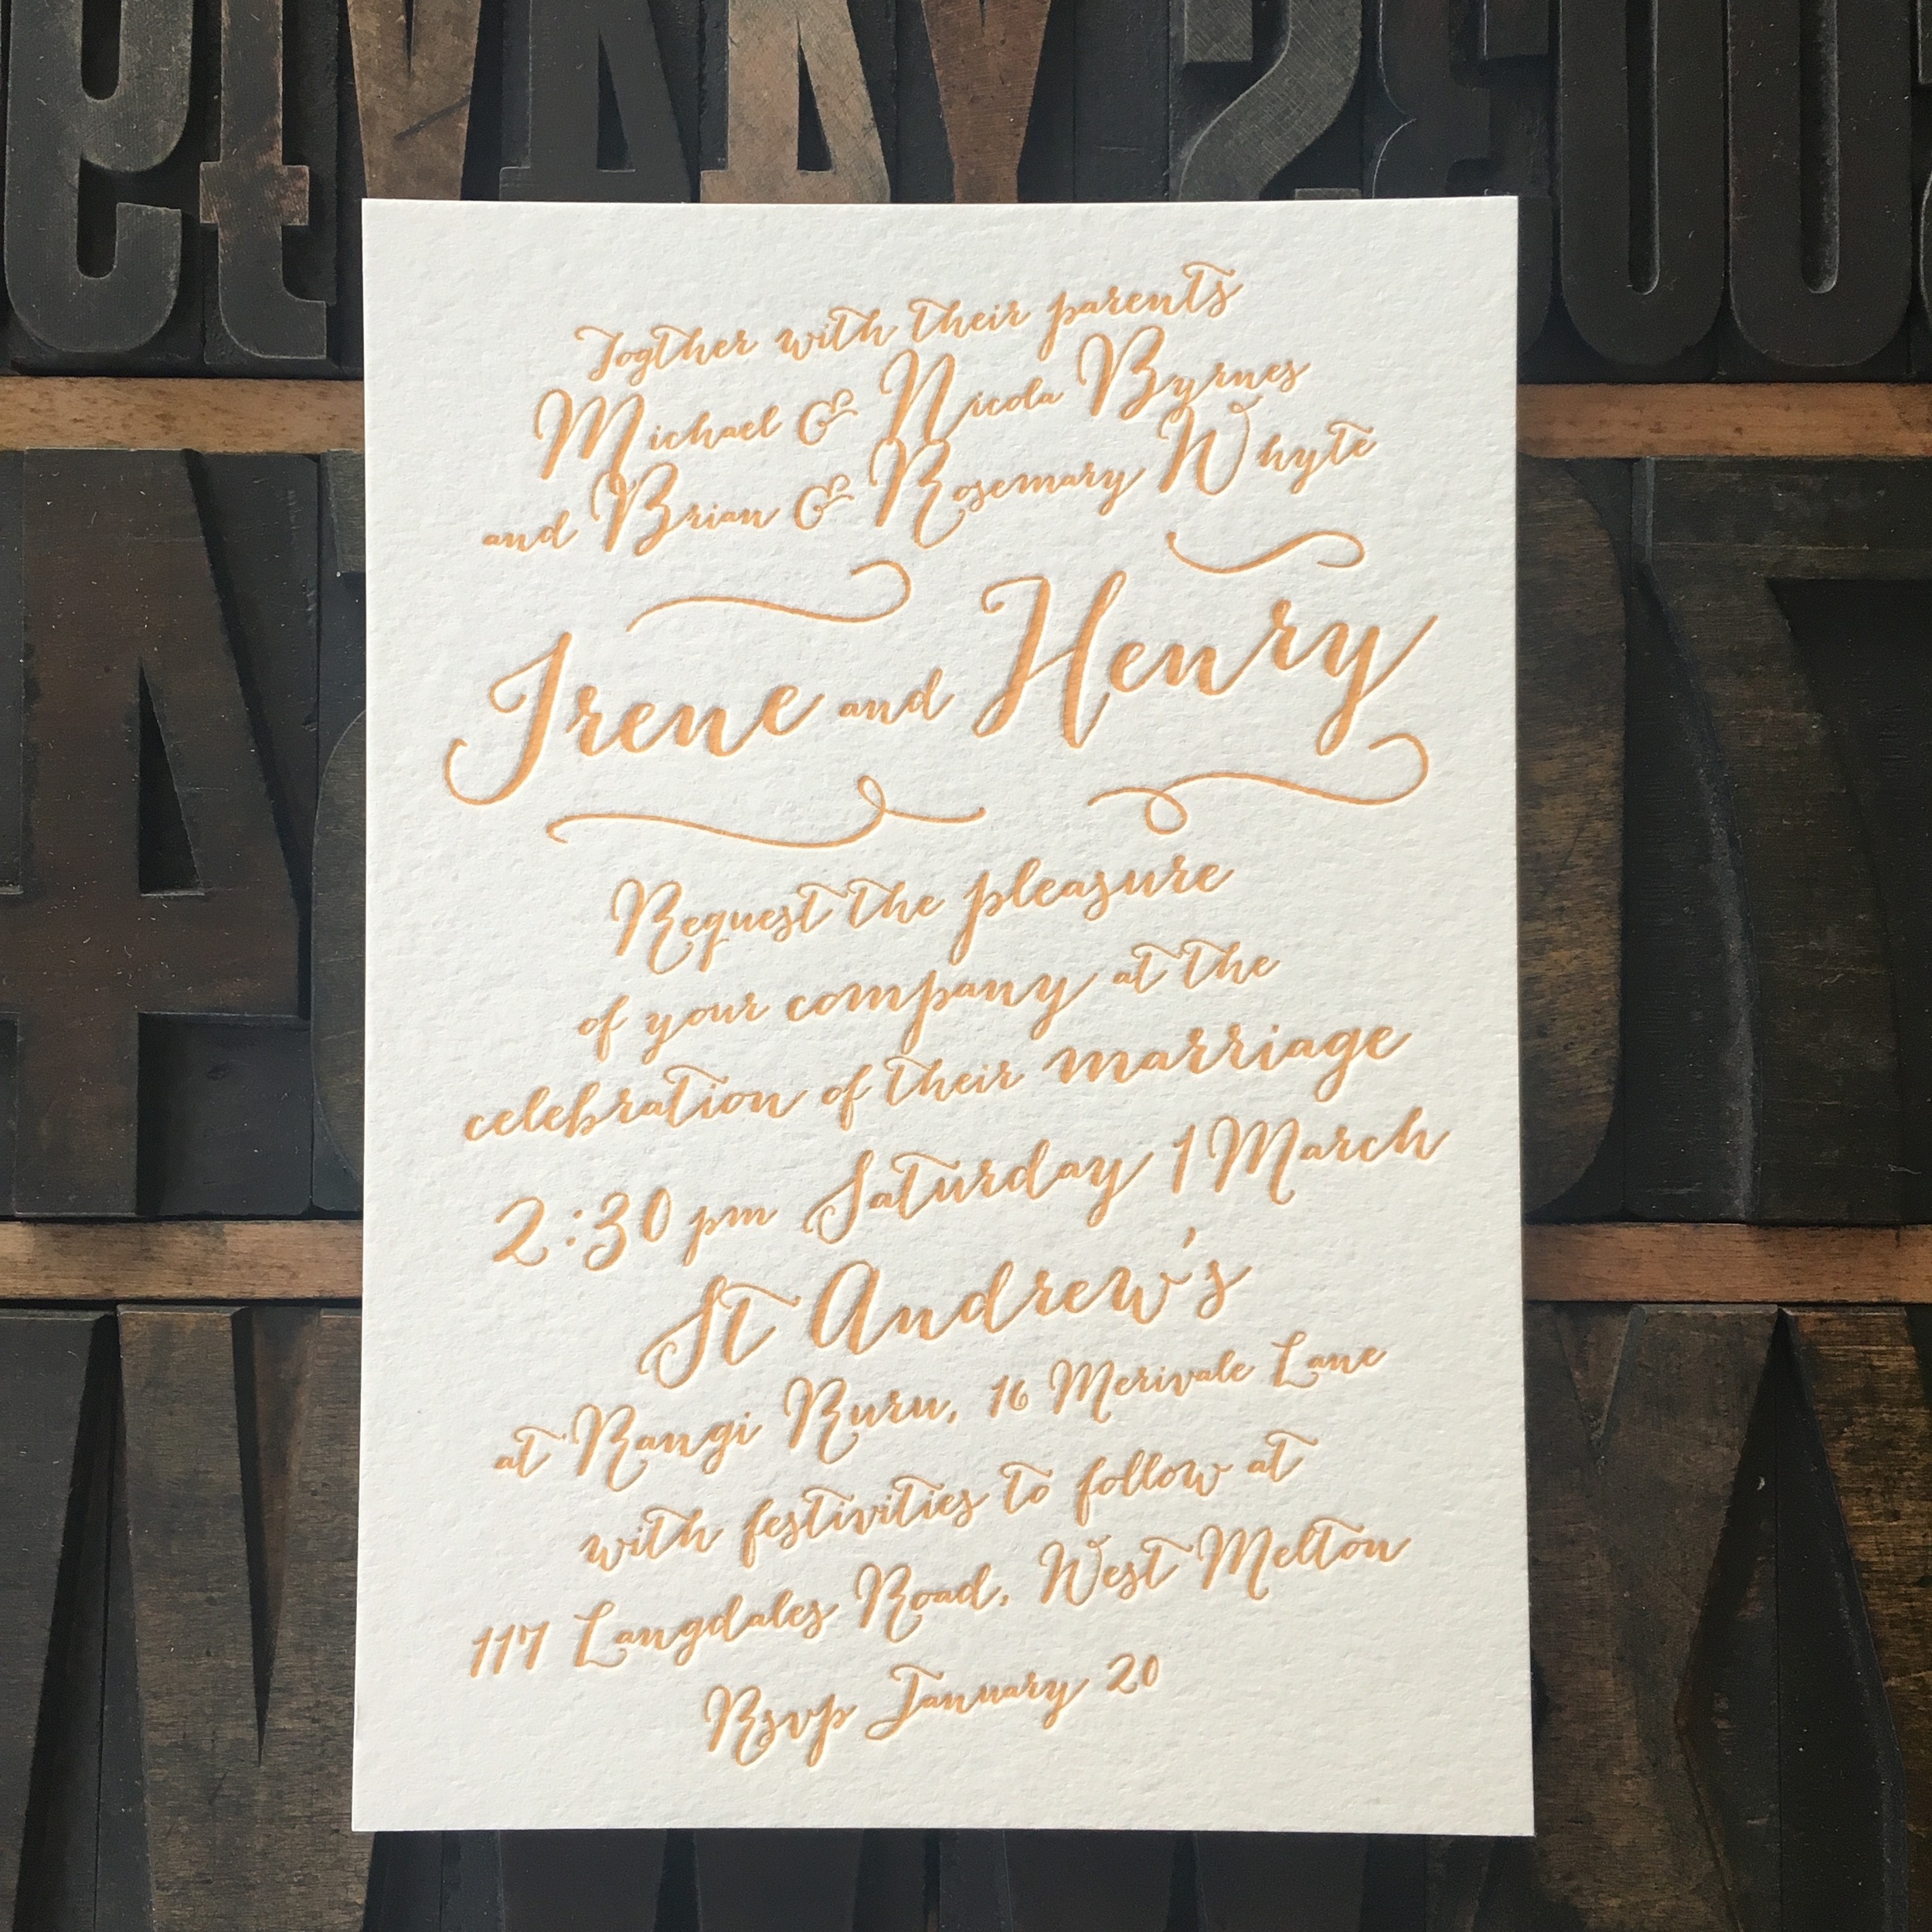 Togther with their parents
Michael & Nicola Byrnes
and Brian & Rosemary Whyte
Irene and Henry
Request the pleasure
of your company at the
celebration of their marriage
2:30 pm Saturday 1 March
St Andrew's
at Rangi Ruru, 16 Merivale Lane
with festivities to follow at
117 Langdales Road, West Melton
Rsvp January 20